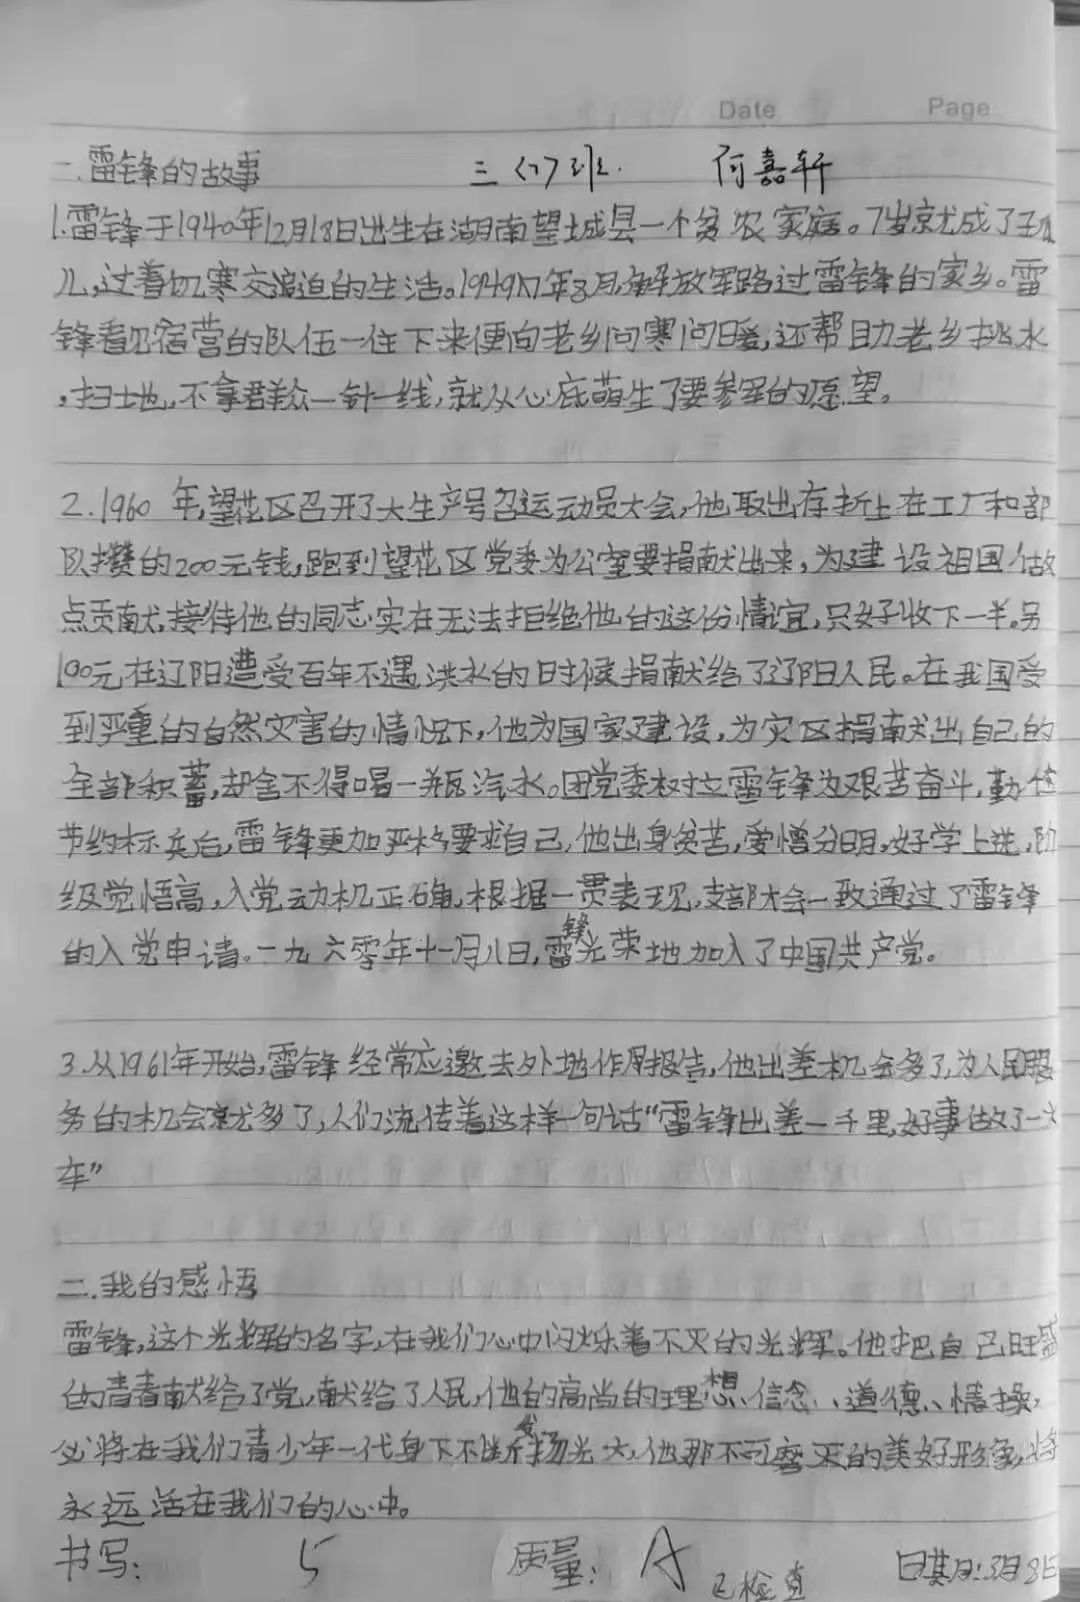 Date Page
一.雷锋的故事 三(7)班. 何嘉轩
1.雷锋于1940年12月18日出生在湖南望城县一个贫农家庭。7岁就成了孤
儿,过着饥寒交迫的生活。1949年8月,解放军路过雷锋的家乡。雷
锋看见宿营的队伍一住下来便向老乡问寒问暖,还帮助老乡挑水
,扫地,不拿群众一针一线,就从心底萌生了要参军的愿望。
2.1960年,望花区召开了大生产号召运动员大会,他取出存折上在工厂和部
队攒的200元钱,跑到望花区党委办公室要捐献出来,为建设祖国做
点贡献,接待他的同志实在无法拒绝他的这份情谊,只好收下一半。另
100元在辽阳遭受百年不遇洪水的时候捐献给了辽阳人民。在我国受
到严重的自然灾害的情况下,他为国家建设,为灾区捐献出自己的
全部积蓄,却舍不得喝一瓶汽水。团党委树立雷锋为艰苦奋斗,勤俭
节约标兵后,雷锋更加严格要求自己,他出身贫苦,爱憎分明,好学上进,阶
级觉悟高,入党动机正确,根据一贯表现,支部大会一致通过了雷锋
的入党申请。一九六零年十一月八日,雷锋光荣地加入了中国共产党。
3.从1961年开始,雷锋经常应邀去外地作报告,他出差机会多了,为人民服
务的机会就多了,人们流传着这样一句话“雷锋出差一千里,好事做了一火
车”
二.我的感悟
雷锋,这个光辉的名字,在我们心中闪烁着不灭的光辉。他把自己旺盛
的青春献给了党,献给了人民,他的高尚的理想、信念、道德、情操,
必将在我们青少年一代身下不断发扬光大,他那不可磨灭的美好形象,将
永远活在我们的心中。
书写: 5 质量: A 已检查 日期:3月8日